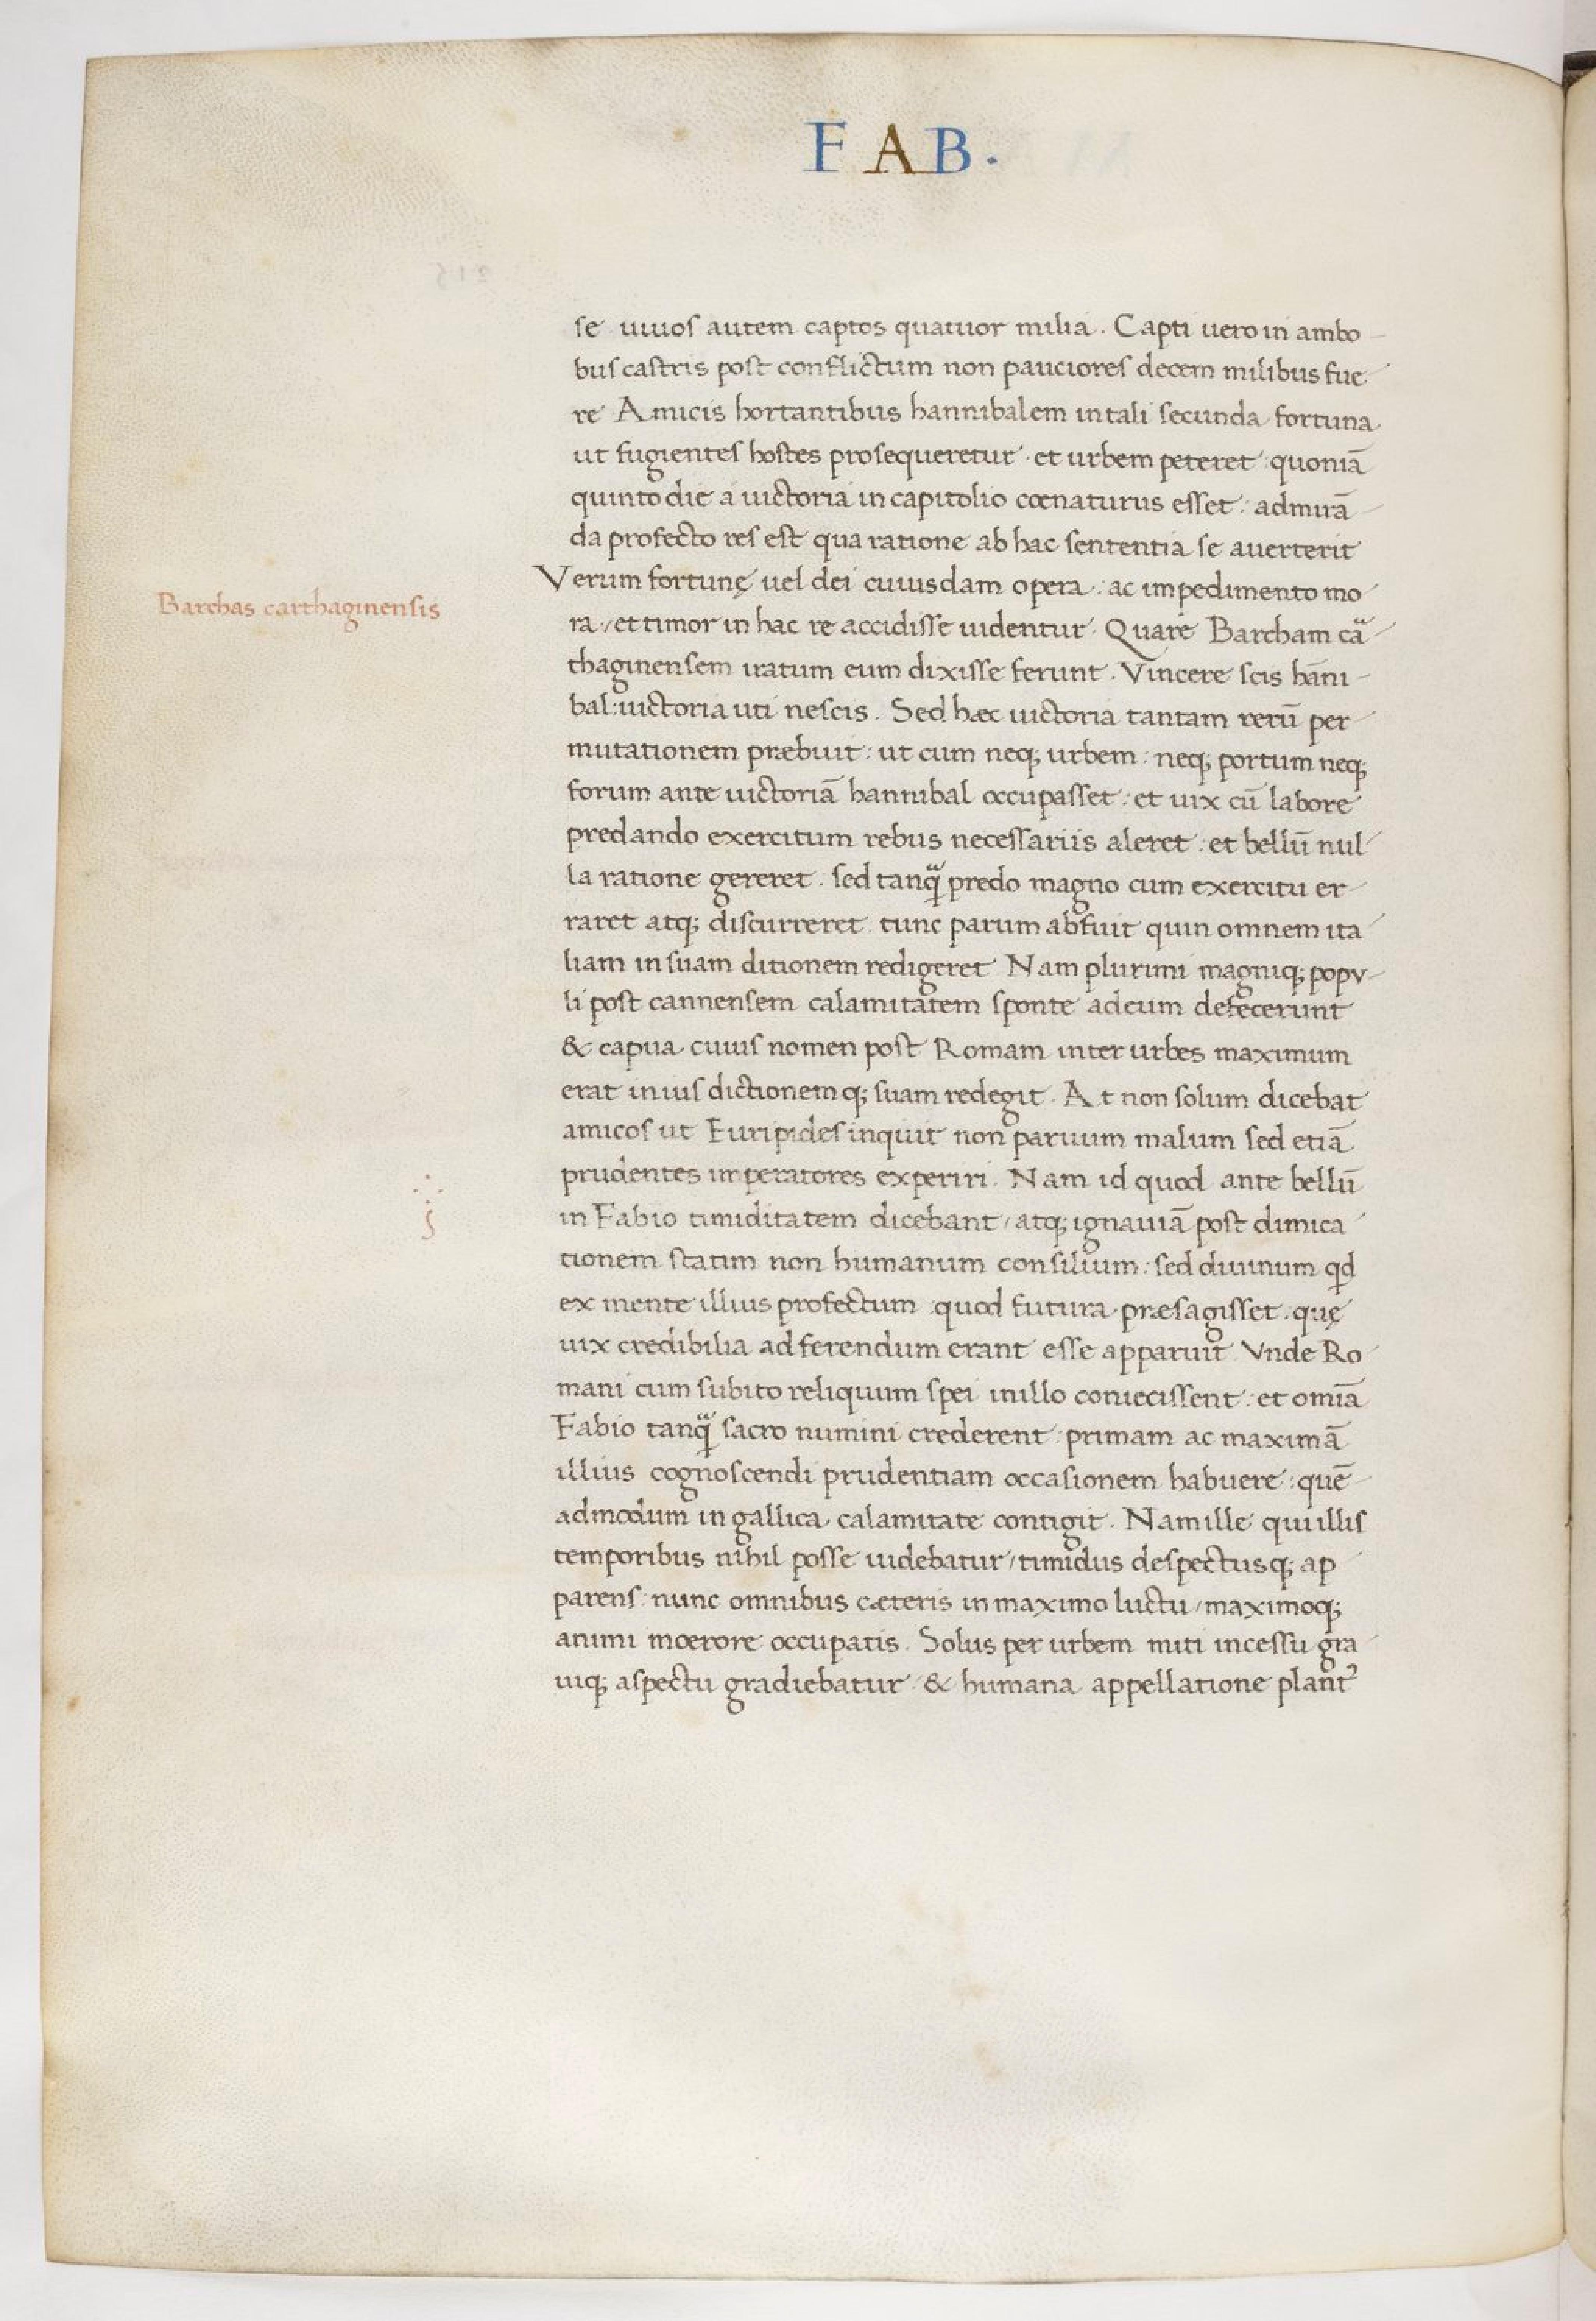 FAB.
se uiuos autem captos quatuor milia. Capti uero in ambo
bus castris post conflictum non pauciores decem milibus fue
re Amicis hortantibus hannibalem in tali secunda fortuna
ut fugientes hostes prosequeretur · et urbem peteret : quoniā
quinto die a uictoria in capitolio cœnaturus esset : admirā
da profecto res est qua ratione ab hac sententia se auerterit
Verum fortunę uel dei cuiusdam opera : ac impedimento mo
Barchas carthaginensis
ra / et timor in hac re accidisse uidentur. Quare Barcham cā
thaginensem iratum eum dixisse ferunt. Vincere scis hāni
bal : uictoria uti nescis. Sed hæc uictoria tantam rerū per
mutationem præbuit : ut cum neq; urbem : neq; portum neq;
forum ante uictoriā hannibal occupasset : et uix cū labore
predando exercitum rebus necessariis aleret : et bellū nul
la ratione gereret. sed tanq̄ predo magno cum exercitu er
raret atq; discurreret tunc parum abfuit quin omnem ita
liam in suam ditionem redigeret Nam plurimi magniq; popu
li post cannensem calamitatem sponte ad eum defecerunt
& capua cuius nomen post Romam inter urbes maximum
erat in ius dictionemq; suam redegit. At non solum dicebat
amicos ut Euripides inquit non paruum malum sed etiā
prudentes imperatores experiri. Nam id quod ante bellū
in Fabio timiditatem dicebant / atq; ignauiā post dimica
tionem statim non humanum consilium : sed diuinum qd
ex mente illius profectum quod futura præsagisset : quę
uix credibilia ad ferendum erant esse apparuit Vnde Ro
mani cum subito reliquum spei in illo coniecissent : et omīa
Fabio tanq̄ sacro numini crederent : primam ac maximā
illius cognoscendi prudentiam occasionem habuere : quē
admodum in gallica calamitate contigit. Nam ille qui illis
temporibus nihil posse uidebatur / timidus despectusq; ap
parens : nunc omnibus cæteris in maximo luctu / maximoq;
animi moerore occupatis. Solus per urbem miti incessu gra
uiq; aspectu gradiebatur & humana appellatione plant᷒